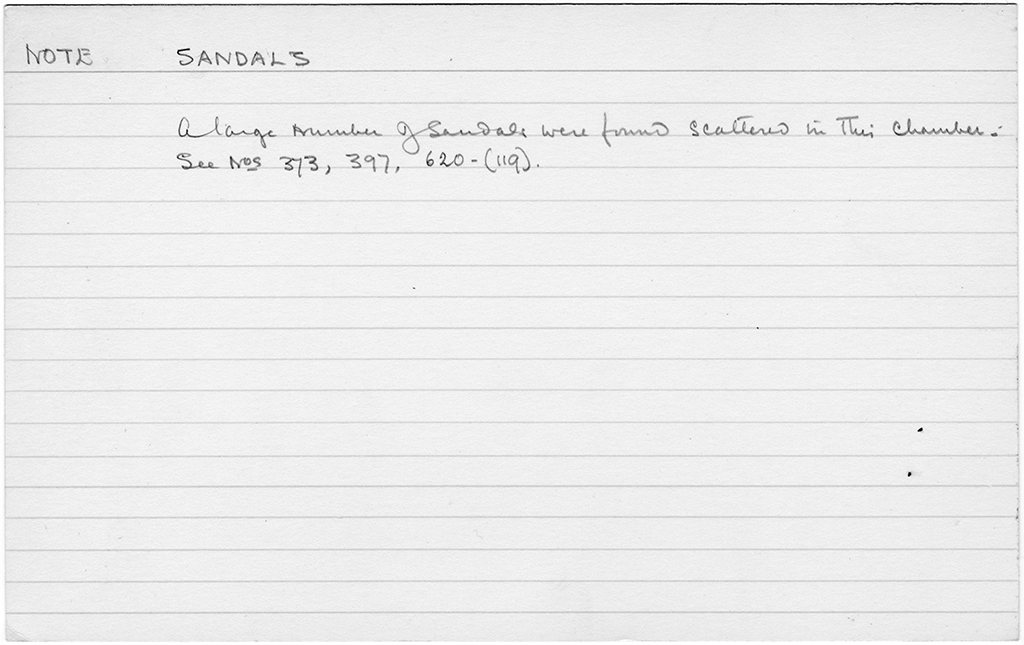 NOTE SANDALS
A large number of Sandals were found scattered in this Chamber:
See Nos 373, 397, 620-(119).